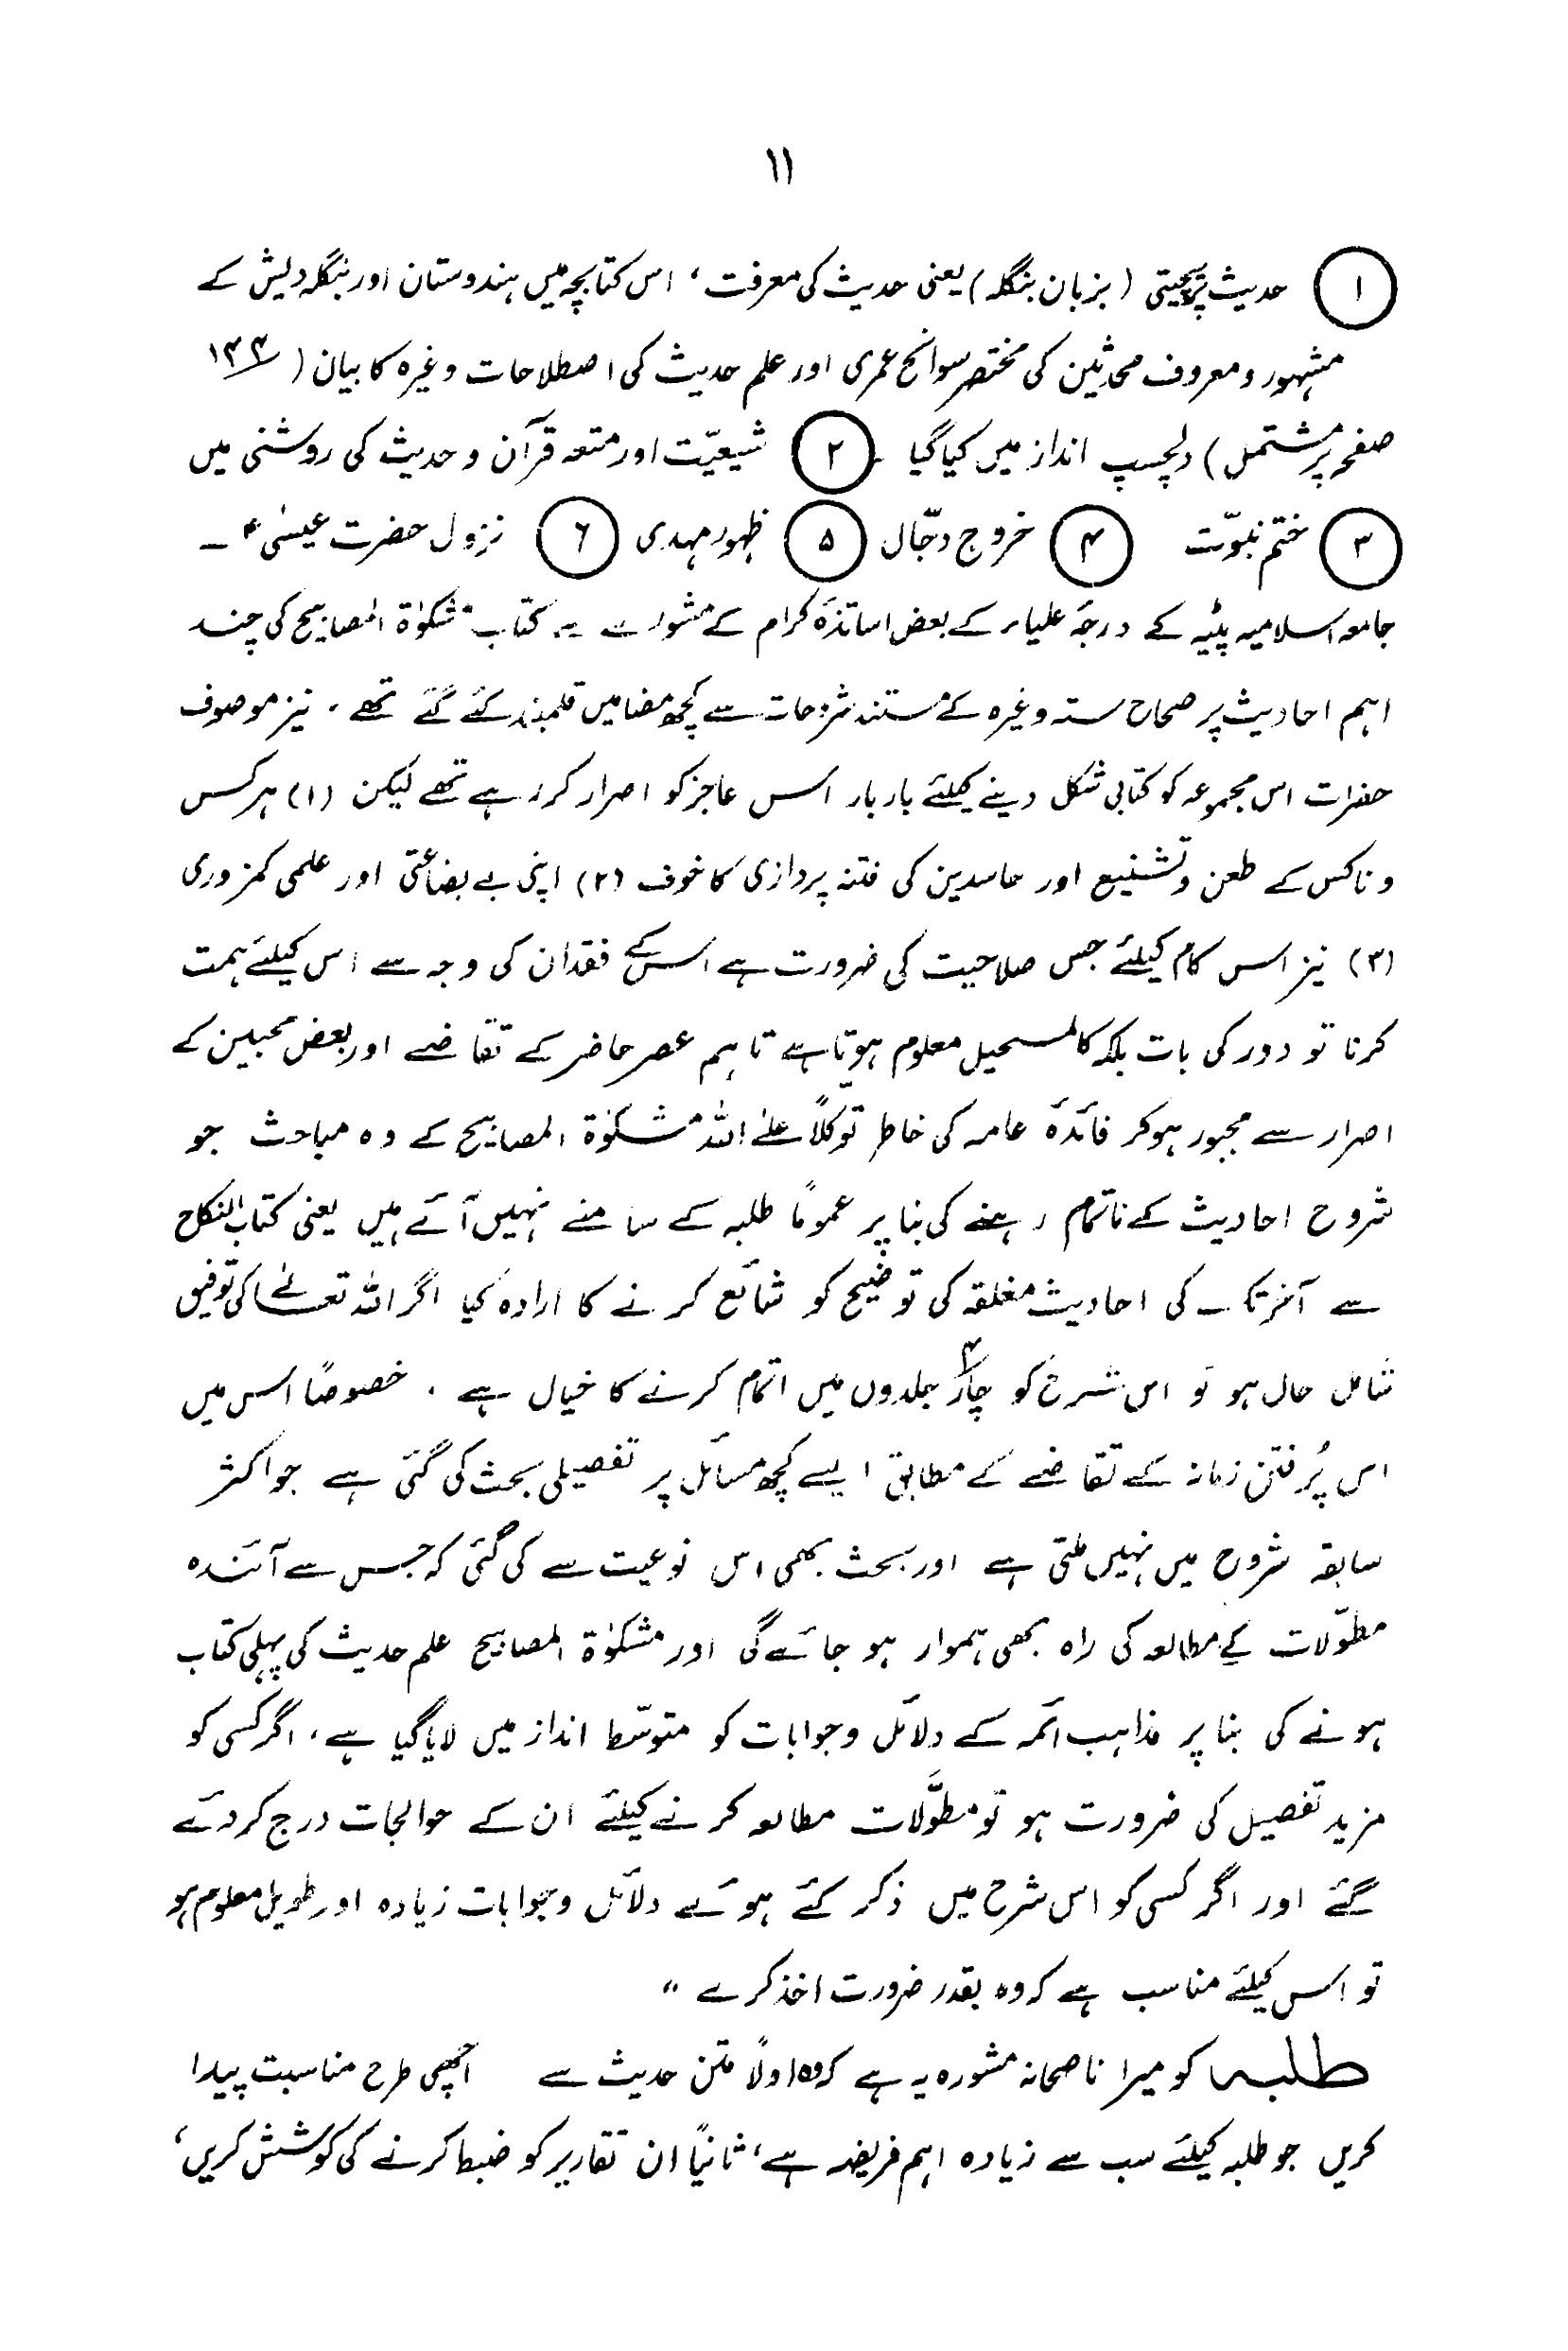 ۱۱
۱ حدیث پریچیتی (بزبان بنگلہ) یعنی حدیث کی معرفت، اس کتابچہ میں ہندوستان اور بنگلہ دیش کے
مشہور و معروف محدثین کی مختصر سوانح عمری اور علم حدیث کی اصطلاحات وغیرہ کا بیان (۱۴۴
صفحہ پر مشتمل) دلچسپ انداز میں کیا گیا ۔ ۲ شیعیّت اور متعہ قرآن و حدیث کی روشنی میں
۳ ختم نبوّت ۴ خروج دجّال ۵ ظہور مہدی ۶ نزول حضرت عیسٰی ؑ ۔
جامعہ اسلامیہ پٹیہ کے درجۂ علیاء کے بعض اساتذۂ کرام کے مشورے سے کتاب مشکوٰۃ المصابیح کی چند
اہم احادیث پر صحاح ستہ وغیرہ کے مستند شروحات سے کچھ مضامیں قلمبند کئے گئے تھے ۔ نیز موصوف
حضرات اس مجموعہ کو کتابی شکل دینے کیلئے بار بار اس عاجز کو اصرار کر رہے تھے لیکن (۱) ہر کس
و ناکس کے طعن و تشنیع اور حاسدین کی فتنہ پردازی کا خوف (۲) اپنی بے بضاعتی اور علمی کمزوری
(۳) نیز اس کام کیلئے جس صلاحیت کی ضرورت ہے اس کے فقدان کی وجہ سے اس کیلئے ہمت
کرنا تو دور کی بات بلکہ کالمستحیل معلوم ہوتا ہے تاہم عصر حاضر کے تقاضے اور بعض محبین کے
اصرار سے مجبور ہو کر فائدۂ عامہ کی خاطر توکلاً علیٰ اللہ مشکوٰۃ المصابیح کے وہ مباحث جو
شروح احادیث کے ناتمام رہنے کی بنا پر عموماً طلبہ کے سامنے نہیں آئے ہیں یعنی کتاب النکاح
سے آخر تک کی احادیث مغلقہ کی توضیح کو شائع کرنے کا ارادہ کیا اگر اللہ تعالےٰ کی توفیق
شامل حال ہو تو اس شرح کو چار ۴ جلدوں میں اتمام کرنے کا خیال ہے ۔ خصوصاً اس میں
اس پُر فتن زمانہ کے تقاضے کے مطابق ایسے کچھ مسائل پر تفصیلی بحث کی گئی ہے جو اکثر
سابقہ شروح میں نہیں ملتی ہے اور بحث بھی اس نوعیت سے کی گئی کہ جس سے آئندہ
مطوّلات کے مطالعہ کی راہ بھی ہموار ہو جائے گی اور مشکوٰۃ المصابیح علم حدیث کی پہلی کتاب
ہونے کی بنا پر مذاہب ائمہ کے دلائل و جوابات کو متوسّط انداز میں لایا گیا ہے، اگر کسی کو
مزید تفصیل کی ضرورت ہو تو مطوَّلات مطالعہ کرنے کیلئے ان کے حوالجات درج کر دئے
گئے اور اگر کسی کو اس شرح میں ذکر کئے ہوئے دلائل و جوابات زیادہ اور طویل معلوم ہو
تو اس کیلئے مناسب ہے کہ وہ بقدر ضرورت اخذ کرے ״
طلبہ کو میرا ناصحانہ مشورہ یہ ہے کہ وہ اولاً متن حدیث سے اچھی طرح مناسبت پیدا
کریں جو طلبہ کیلئے سب سے زیادہ اہم فریضہ ہے، ثانیاً ان تقاریر کو ضبط کرنے کی کوشش کریں،